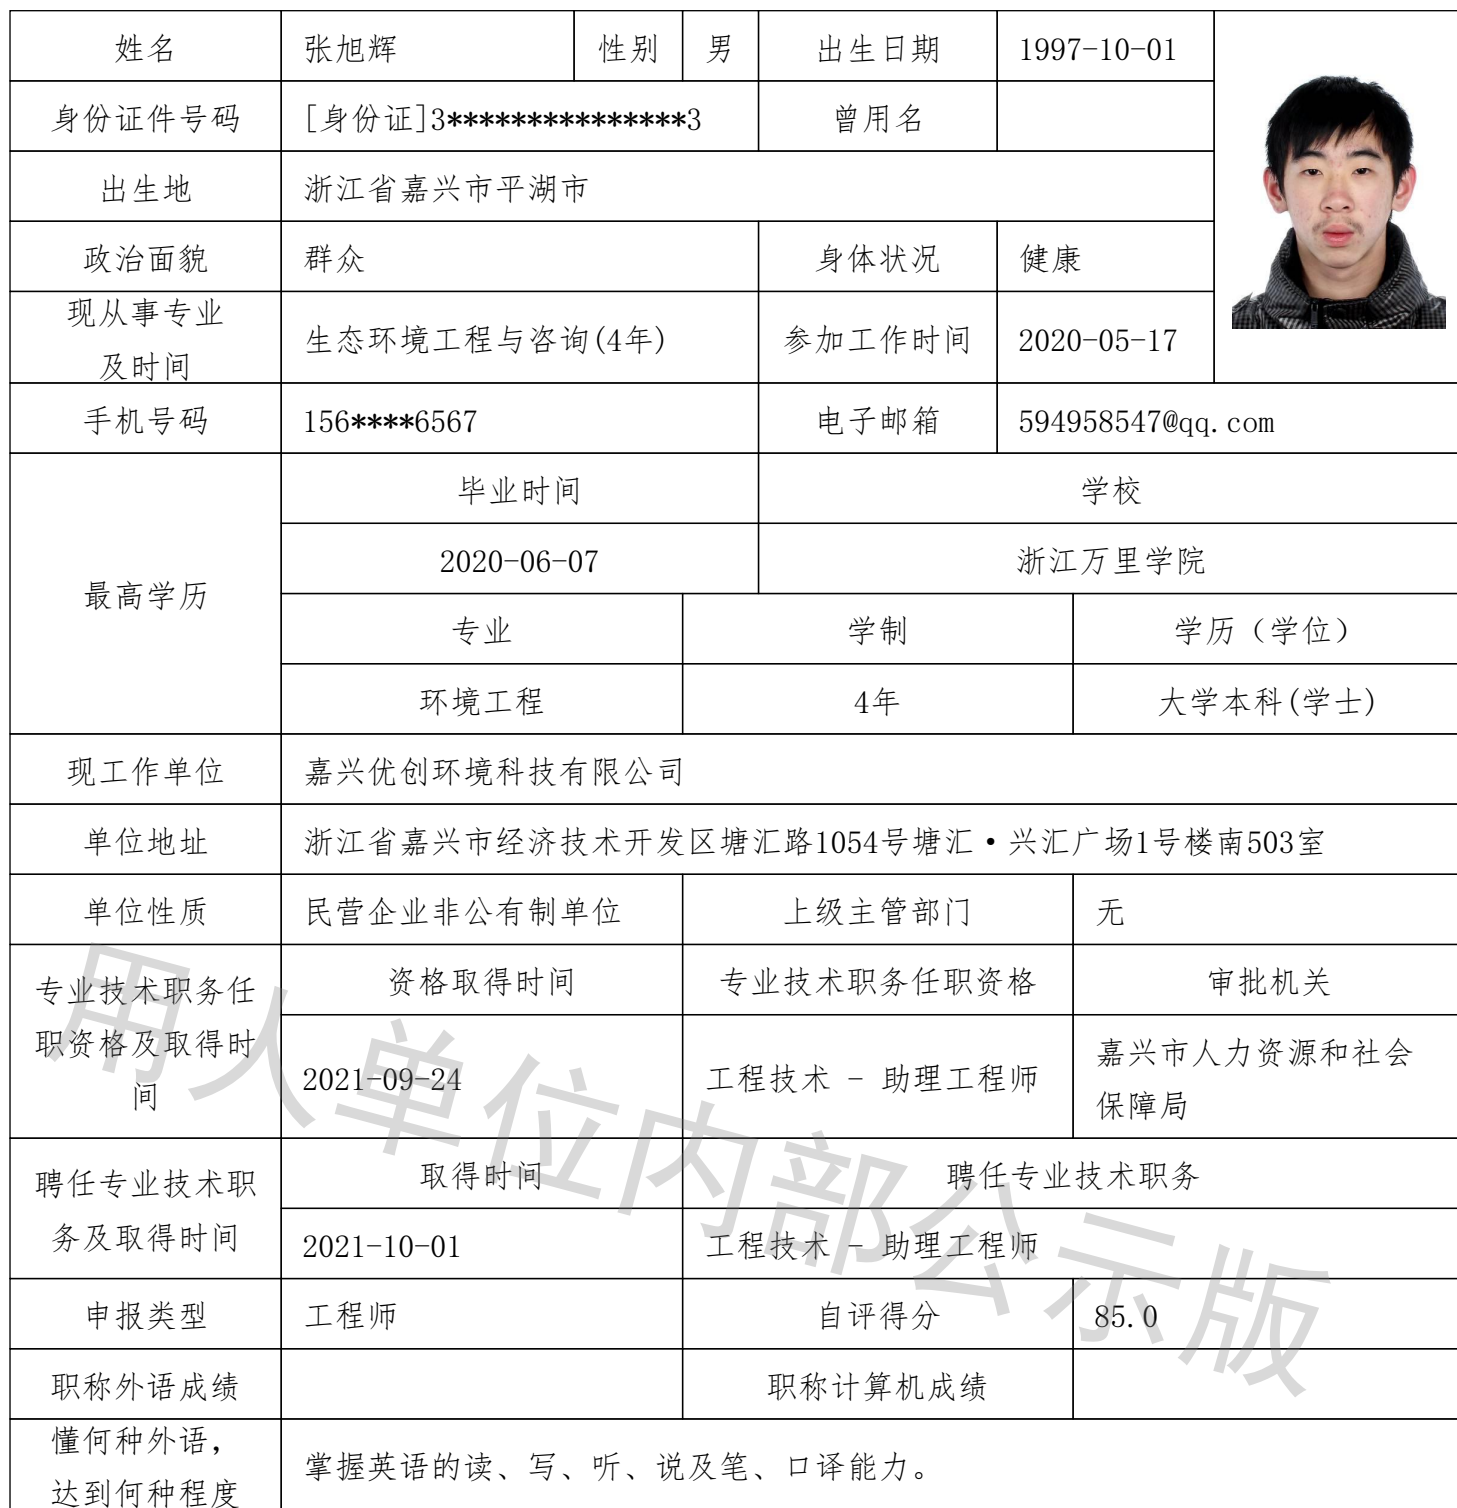 姓名 张旭辉 性别 男 出生日期 1997-10-01
身份证件号码 [身份证]3***************3 曾用名
出生地 浙江省嘉兴市平湖市
政治面貌 群众 身体状况 健康
现从事专业
及时间
生态环境工程与咨询(4年) 参加工作时间 2020-05-17
手机号码 156****6567 电子邮箱 594958547@qq.com
最高学历
毕业时间 学校
2020-06-07 浙江万里学院
专业 学制 学历（学位）
环境工程 4年 大学本科(学士)
现工作单位 嘉兴优创环境科技有限公司
单位地址 浙江省嘉兴市经济技术开发区塘汇路1054号塘汇·兴汇广场1号楼南503室
单位性质 民营企业非公有制单位 上级主管部门 无
专业技术职务任
职资格及取得时
间
资格取得时间 专业技术职务任职资格 审批机关
2021-09-24 工程技术 - 助理工程师 嘉兴市人力资源和社会
保障局
聘任专业技术职
务及取得时间
取得时间 聘任专业技术职务
2021-10-01 工程技术 - 助理工程师
申报类型 工程师 自评得分 85.0
职称外语成绩 职称计算机成绩
懂何种外语，
达到何种程度
掌握英语的读、写、听、说及笔、口译能力。
用人单位内部公示版